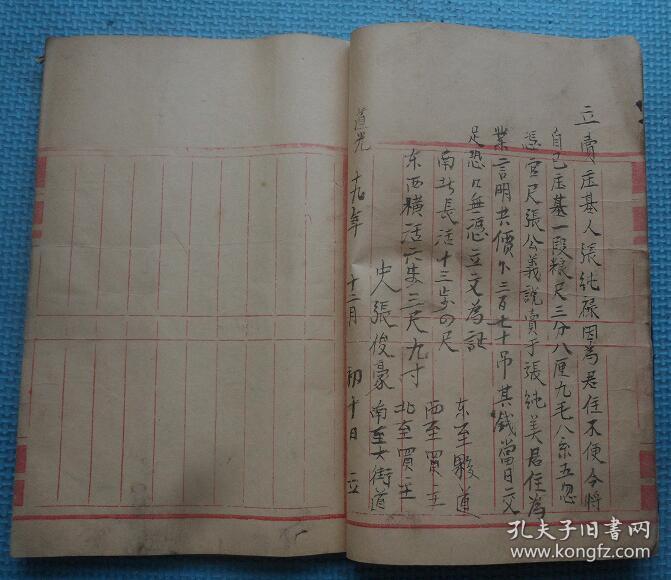 立賣庄基人張純祿因為居住不便今將
自己庄基一段粮尺三分八厘九毛八糸五忽
憑官尺張公義說賣于張純美居住為
業言明共價不三百七十吊其錢當日交
足恐口無憑立文為証
南北長活十三步四尺
東西橫活六步三尺九寸
東至毀道
西至買主
北至買主
南至大街道
中人張俊豪
道光 十九年 十二月 初十日 立
孔夫子旧书网
www.kongfz.com